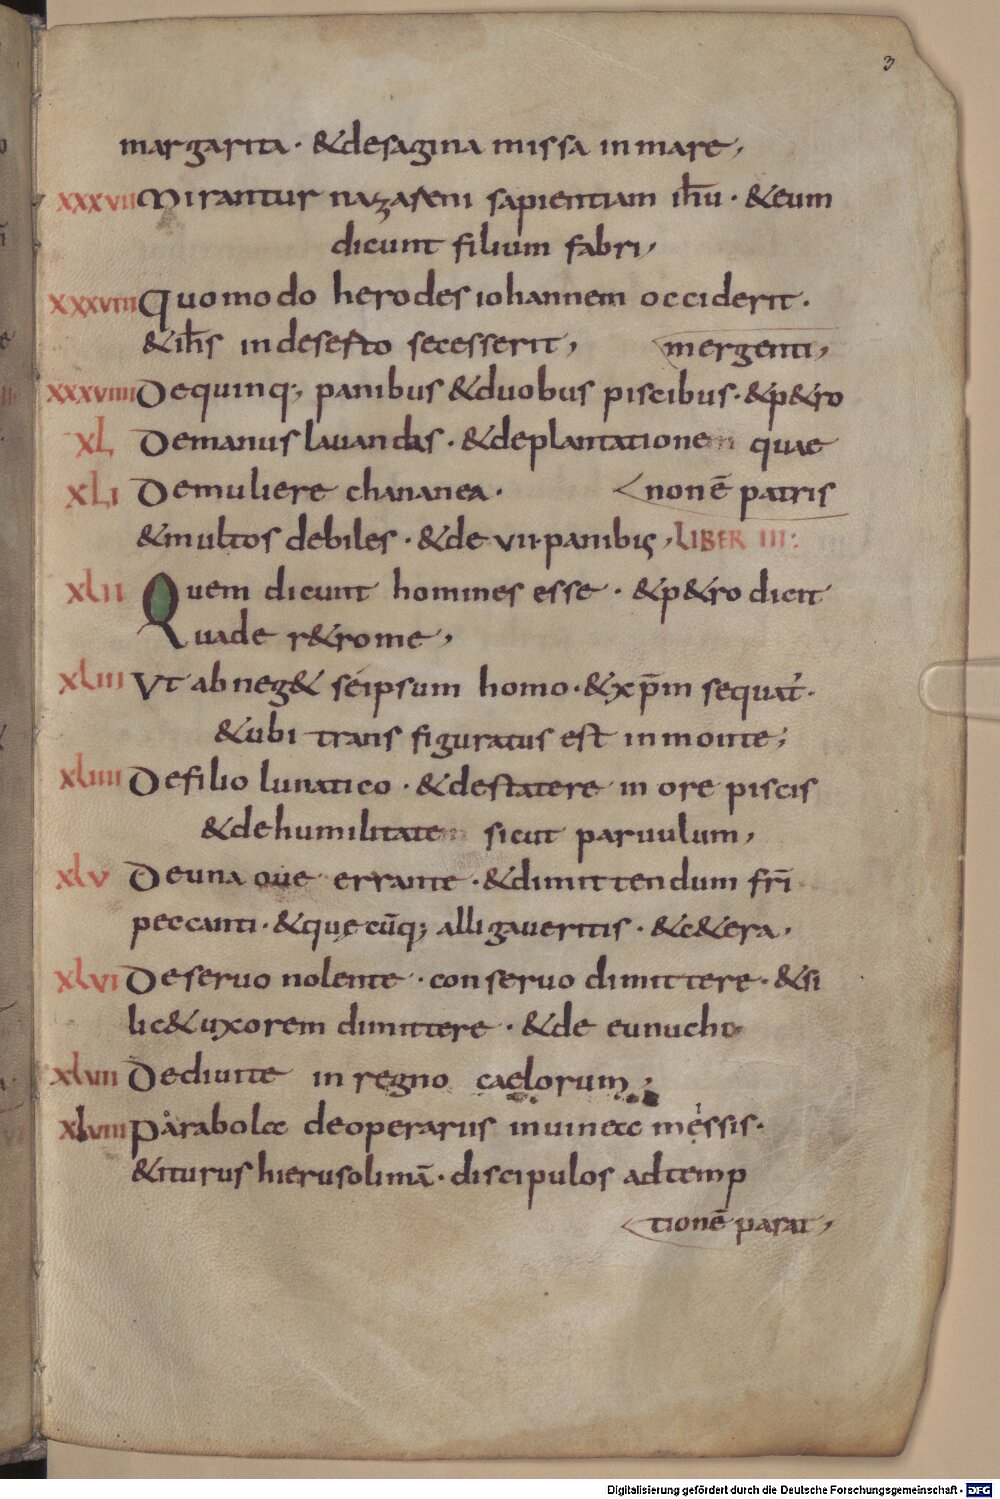 3
margarita · & de sagina missa in mare ,
XXXVII Mirantur nazareni sapientiam ihū · & eum
dicunt filium fabri ,
XXXVIII Quomodo herodes iohannem occiderit ·
& ihs in deserto secesserit ,
mergenti ,
XXXVIIII De quinq; panibus & duobus piscibus · & p&ro
XL De manus lauandas · & de plantatione quae
XLI De muliere chananea ·
non ē patris
& multos debiles · & de VII · panibus , LIBER III :
XLII Quem dicunt homines esse · & p&ro dicit
Uade r&ro me ,
XLIII Ut abneg& se ipsum homo · & xp̄m sequat̄ ·
& ubi transfiguratus est in monte ;
XLIIII De filio lunatico · & de statere in ore piscis
& de humilitate sicut paruulum ,
XLV De una oue errante · & dimittendum fr̄i
peccanti · & quęcūq; alligaueritis · & c&era ,
XLVI De seruo nolente · conseruo dimittere · & si
lic& uxorem dimittere · & de eunucho
XLVII De diuite in regno caelorum ;
XLVIII Parabolae de operariis in uineae messis ·
& iturus hierusolimā · discipulos ad temp
tionē parat ,
Digitalisierung gefördert durch die Deutsche Forschungsgemeinschaft - DFG